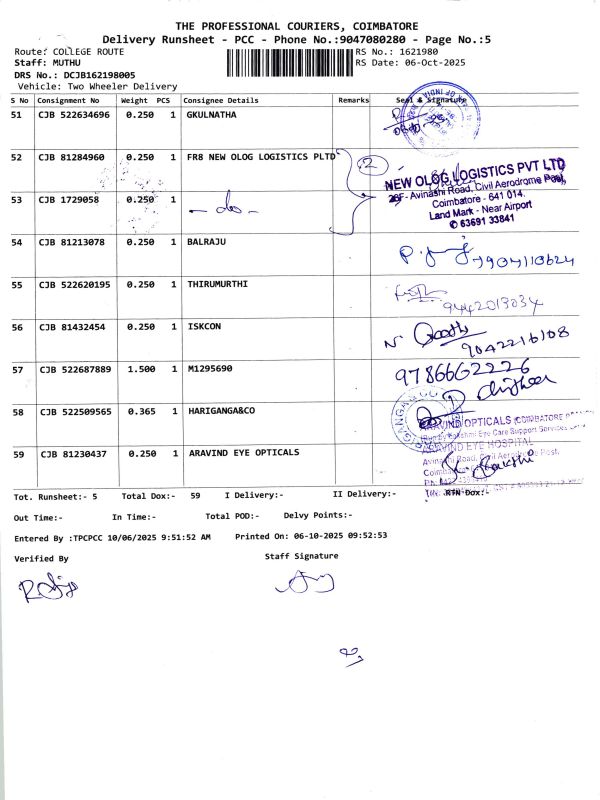 THE PROFESSIONAL COURIERS, COIMBATORE
Delivery Runsheet - PCC - Phone No.:9047080280 - Page No.:5
Route: COLLEGE ROUTE RS No.: 1621980
Staff: MUTHU RS Date: 06-Oct-2025
DRS No.: DCJB162198005
Vehicle: Two Wheeler Delivery
S No Consignment No Weight PCS Consignee Details Remarks Seal & Signature
51 CJB 522634696 0.250 1 GKULNATHA
52 CJB 81284960 0.250 1 FR8 NEW OLOG LOGISTICS PLTD 2
NEW OLOG LOGISTICS PVT LTD
28F - Avinashi Road, Civil Aerodrome Post,
Coimbatore - 641 014.
Land Mark - Near Airport
63691 33841
53 CJB 1729058 0.250 1 - do -
54 CJB 81213078 0.250 1 BALRAJU 7904110624
55 CJB 522620195 0.250 1 THIRUMURTHI 9442013034
56 CJB 81432454 0.250 1 ISKCON 9042216108
57 CJB 522687889 1.500 1 M1295690 9786662226
58 CJB 522509565 0.365 1 HARIGANGA&CO
59 CJB 81230437 0.250 1 ARAVIND EYE OPTICALS
ARAVIND OPTICALS (COIMBATORE
Eye Care Support Services
ARAVIND EYE HOSPITAL
Avinashi Road, Civil Aerodrome Post,
Tot. Runsheet:- 5 Total Dox:- 59 I Delivery:- II Delivery:- RTN Dox:-
Out Time:- In Time:- Total POD:- Delvy Points:-
Entered By :TPCPCC 10/06/2025 9:51:52 AM Printed On: 06-10-2025 09:52:53
Verified By Staff Signature